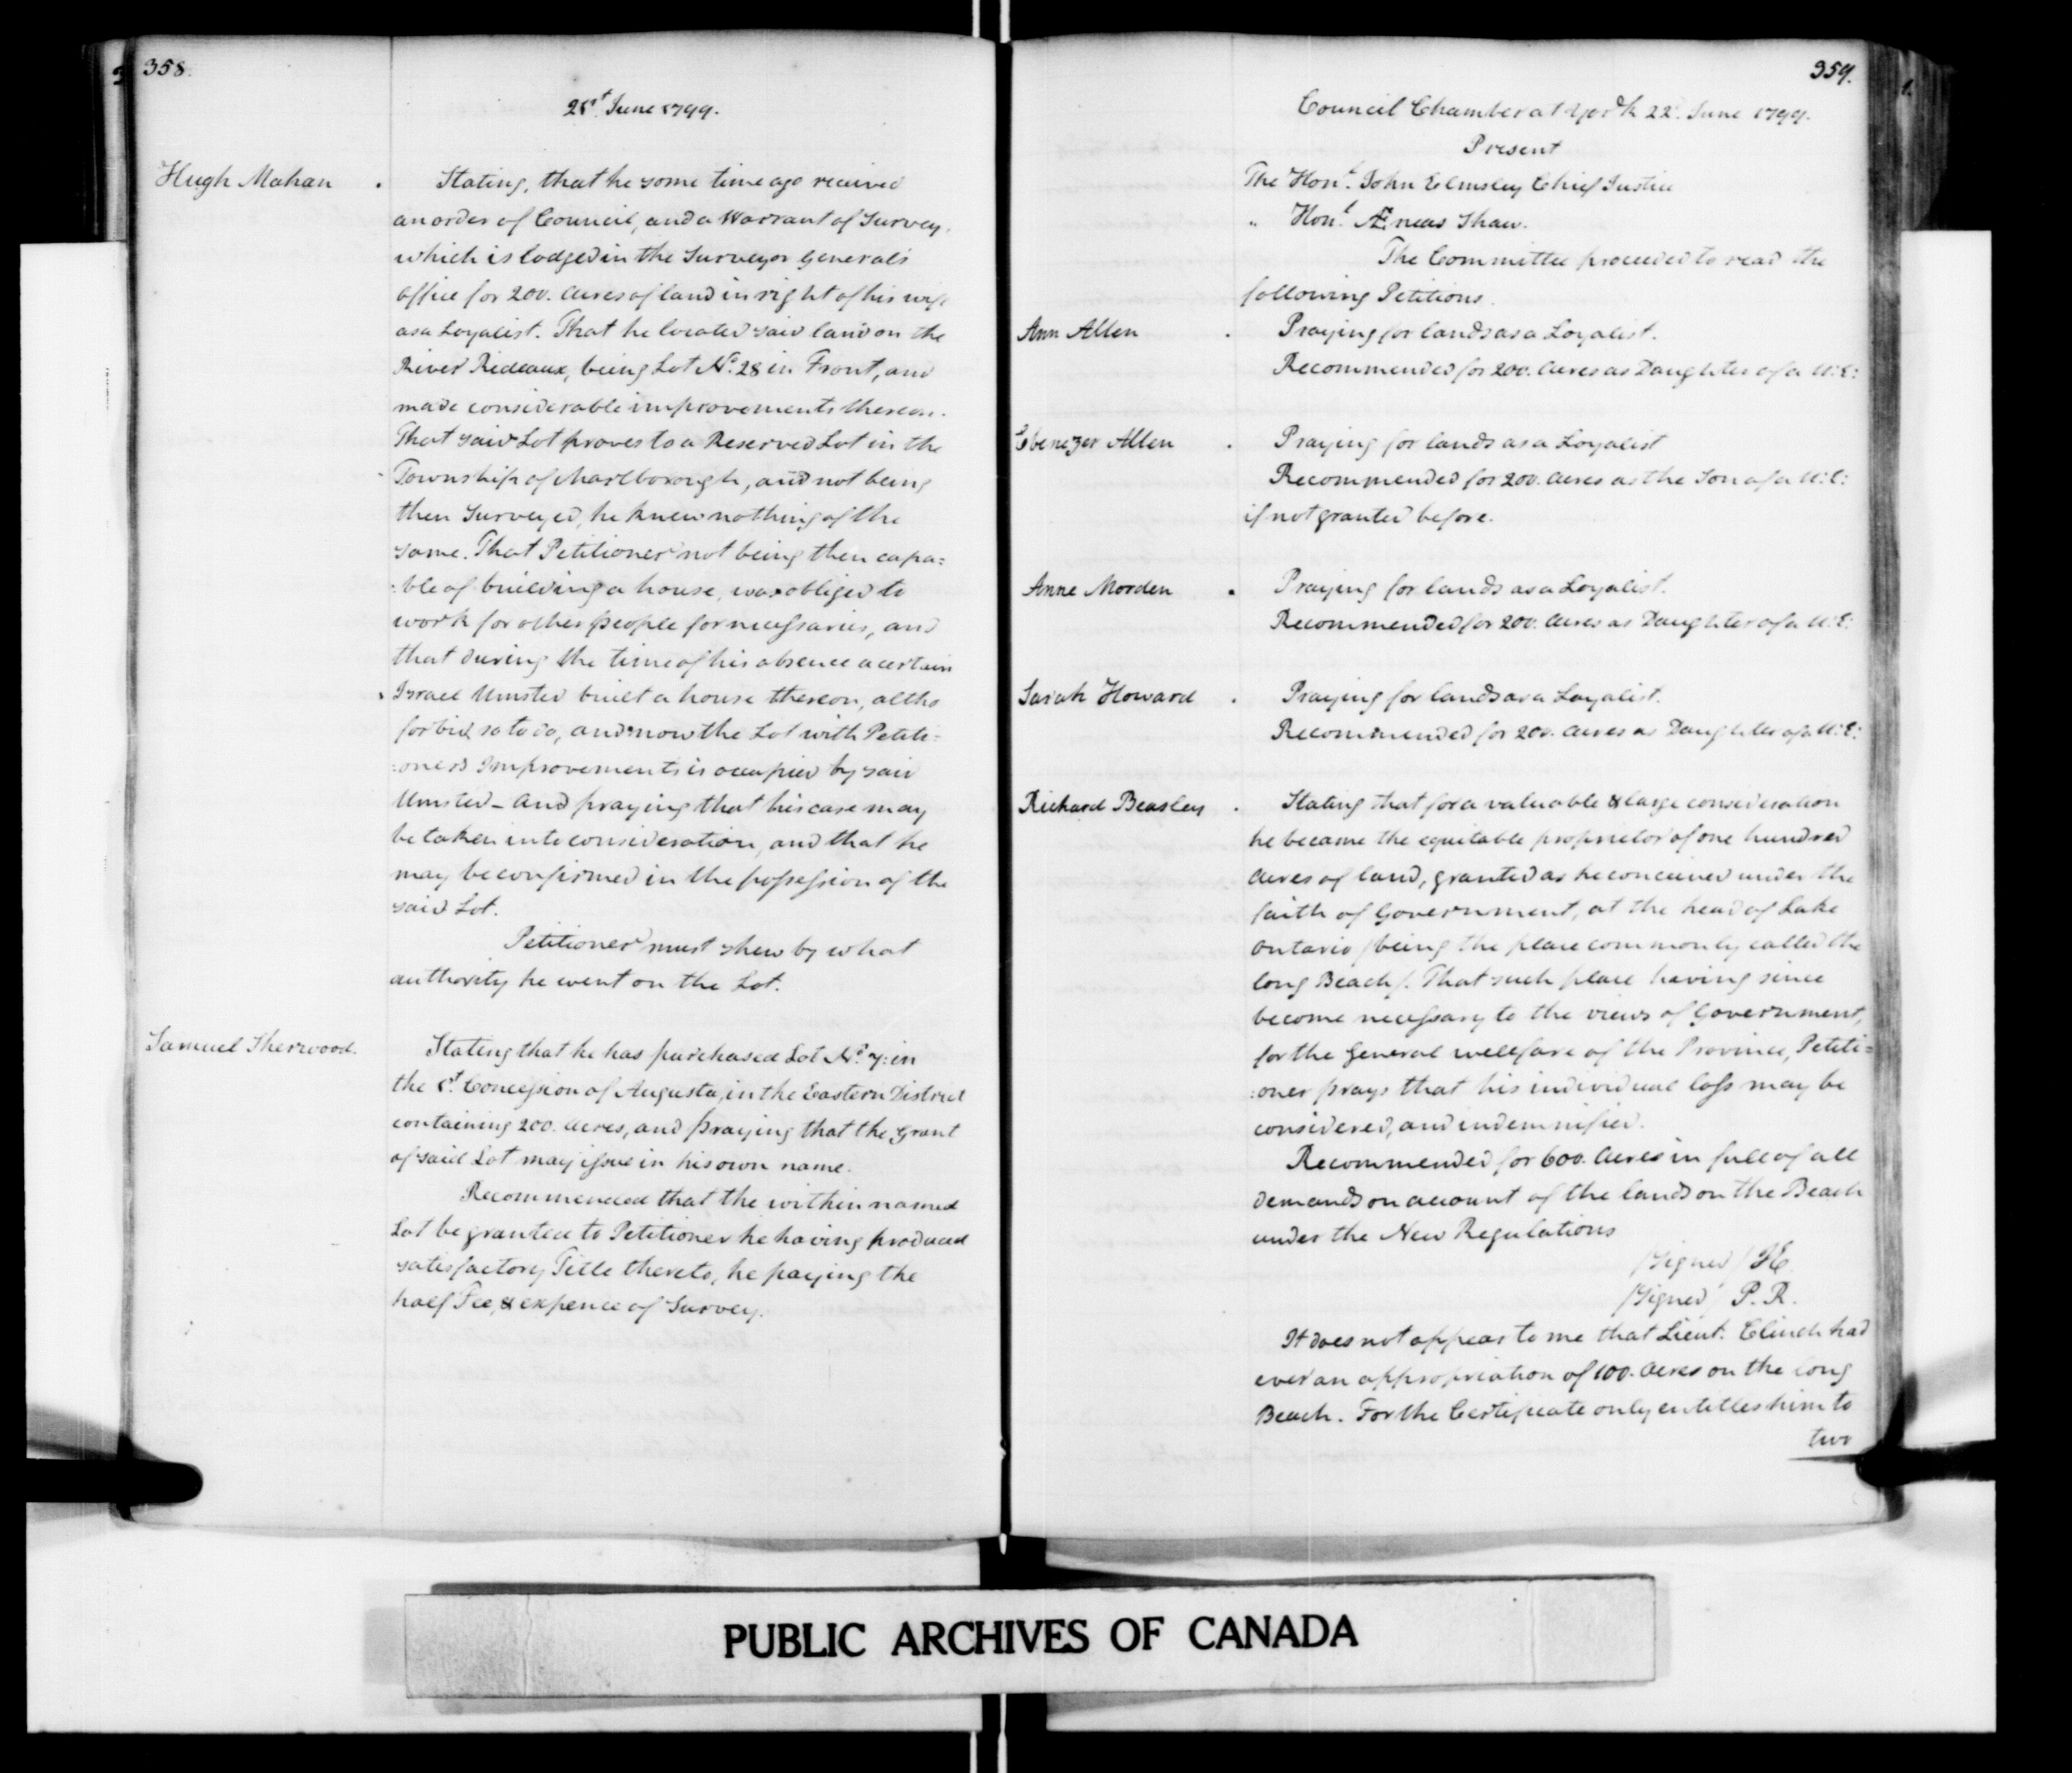 358.
21st June 1799.
Hugh Mahan . Stating, that he some time ago received
an order of Council, and a Warrant of Survey,
which is lodged in the Surveyor Generals
office for 200. Acres of land in right of his wife
as a Loyalist. That he located said land on the
River Rideaux, being Lot No. 28 in Front, and
made considerable improvements thereon.
That said Lot proves to a Reserved Lot in the
Township of Marlborough, and not being
then Surveyed, he knew nothing of the
same. That Petitioner not being then capa=
:ble of building a house, was obliged to
work for other people for necessaries, and
that during the time of his absence a certain
Israel Umsted built a house thereon, altho
forbid so to do, and now the Lot with Petiti=
:oners Improvements is occupied by said
Umsted - And praying that his case may
be taken into consideration, and that he
may be confirmed in the possession of the
said Lot.
Petitioner must shew by what
authority he went on the Lot.
Samuel Sherwood. Stating that he has purchased Lot No. 7: in
the 1st Concession of Augusta, in the Eastern District
containing 200. Acres, and praying that the Grant
of said Lot may issue in his own name.
Recommended that the within named
Lot be granted to Petitioner he having produced
satisfactory Title thereto, he paying the
half Fee, & expence of Survey.
359.
Council Chamber at York 22d June 1799.
Present
The Honl. John Elmsley Chief Justice
" Honl. Æneas Shaw.
The Committee proceeded to read the
following Petitions.
Ann Allen . Praying for lands as a Loyalist.
Recommended for 200. Acres as Daughter of a U:E:
Ebenezer Allen . Praying for lands as a Loyalist
Recommended for 200. Acres as the Son of a U:E:
if not granted before.
Anne Morden . Praying for lands as a Loyalist.
Recommended for 200. Acres as Daughter of a U:E:
Sarah Howard . Praying for lands as a Loyalist.
Recommended for 200. Acres as Daughter of a U:E:
Richard Beasley . Stating that for a valuable & large consideration
he became the equitable proprietor of one hundred
Acres of land, granted as he conceived under the
faith of Government, at the head of Lake
Ontario /being the place commonly called the
long Beach/. That such place having since
become necessary to the views of Government,
for the General wellfare of the Province, Petiti=
:oner prays that his individual loss may be
considered, and indemnified.
Recommended for 600. Acres in full of all
demands on account of the lands on the Beach
under the New Regulations
/Signed/ JE
/Signed/ P. R.
It does not appear to me that Lieut. Clinch had
ever an appropriation of 100. Acres on the long
Beach. For the Certificate only entitles him to
two
PUBLIC ARCHIVES OF CANADA